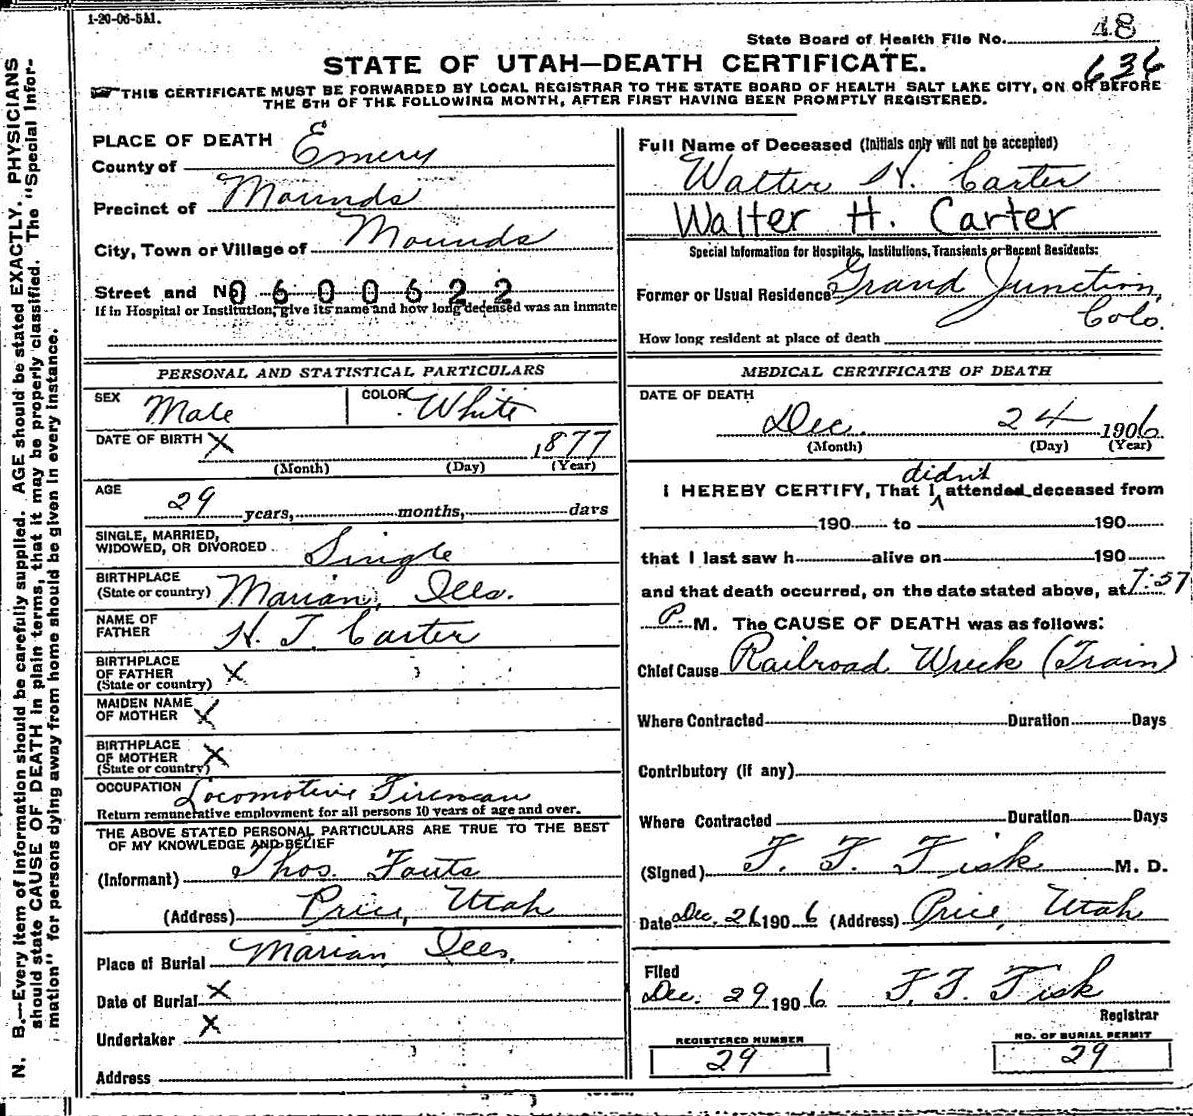 1-20-06-5M.
State Board of Health File No. 48
636
STATE OF UTAH—DEATH CERTIFICATE.
THIS CERTIFICATE MUST BE FORWARDED BY LOCAL REGISTRAR TO THE STATE BOARD OF HEALTH SALT LAKE CITY, ON OR BEFORE
THE 5TH OF THE FOLLOWING MONTH, AFTER FIRST HAVING BEEN PROMPTLY REGISTERED.
PLACE OF DEATH
County of Emery
Precinct of Mounds
City, Town or Village of Mounds
Street and No 0600622
If in Hospital or Institution, give its name and how long deceased was an inmate
Full Name of Deceased (Initials only will not be accepted)
Walter H. Carter
Walter H. Carter
Special Information for Hospitals, Institutions, Transients or Recent Residents:
Former or Usual Residence Grand Junction,
Colo.
How long resident at place of death
PERSONAL AND STATISTICAL PARTICULARS
SEX Male COLOR White
DATE OF BIRTH X 1877
(Month) (Day) (Year)
AGE
29 years, months, days
SINGLE, MARRIED,
WIDOWED, OR DIVORCED Single
BIRTHPLACE
(State or country) Marian, Ills.
NAME OF
FATHER H. T. Carter
BIRTHPLACE
OF FATHER X
(State or country)
MAIDEN NAME
OF MOTHER X
BIRTHPLACE
OF MOTHER X
(State or country)
OCCUPATION Locomotive Fireman
Return remunerative employment for all persons 10 years of age and over.
THE ABOVE STATED PERSONAL PARTICULARS ARE TRUE TO THE BEST
OF MY KNOWLEDGE AND BELIEF
(Informant) Thos. Fouts
(Address) Price, Utah
Place of Burial Marian Ills.
Date of Burial X
Undertaker X
Address
MEDICAL CERTIFICATE OF DEATH
DATE OF DEATH
Dec. 24 1906
(Month) (Day) (Year)
didn't
I HEREBY CERTIFY, That I attended deceased from
190 to 190
that I last saw h alive on 190
and that death occurred, on the date stated above, at 7:57
P. M. The CAUSE OF DEATH was as follows:
Chief Cause Railroad Wreck (Train)
Where Contracted Duration Days
Contributory (if any)
Where Contracted Duration Days
(Signed) F. F. Fisk M. D.
Date Dec. 26 1906 (Address) Price, Utah
Filed
Dec. 29 1906 F. F. Fisk
Registrar
REGISTERED NUMBER
29
NO. OF BURIAL PERMIT
29
N. B.—Every item of information should be carefully supplied. AGE should be stated EXACTLY. PHYSICIANS
should state CAUSE OF DEATH in plain terms, that it may be properly classified. The "Special Infor-
mation" for persons dying away from home should be given in every instance.